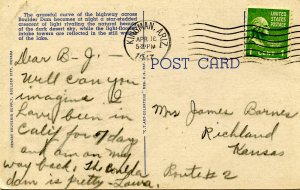 The graceful curve of the highway across
Boulder Dam becomes at night a star-studded
crescent of light rivaling the natural beauty
of the dark desert sky, while the light-flooded
intake towers are reflected in the still waters
of the lake.
KINGMAN, ARIZ.
APR 16
5 PM
POST CARD
Dear B-J
Will can you
imagine I
have been in
Calif for 7 day
and am on my
way back. The
dam is pretty
Mrs James Barnes
Richland
Kansas
Route # 2